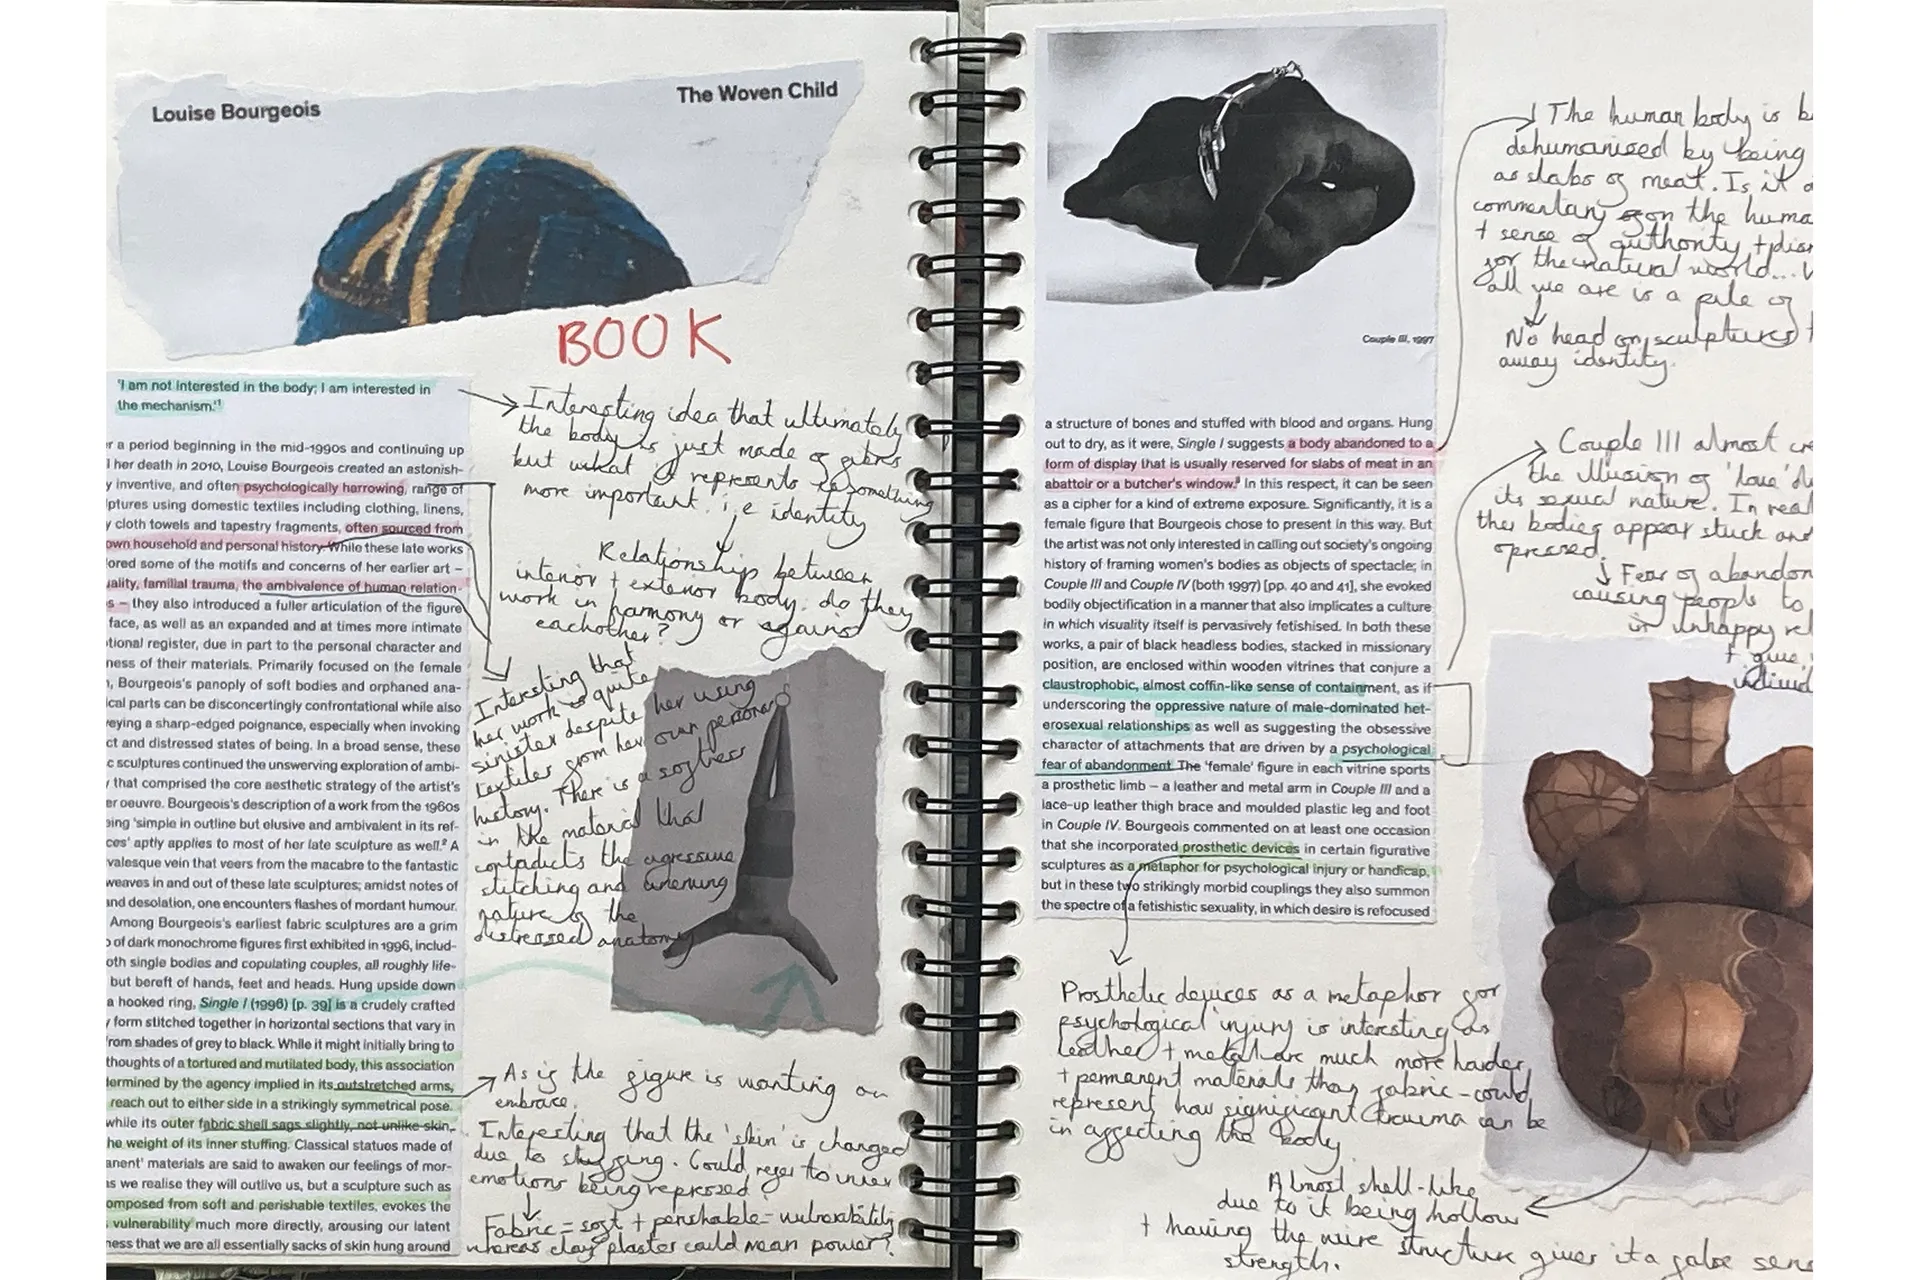 Louise Bourgeois
The Woven Child
BOOK
'I am not interested in the body; I am interested in
the mechanism.'1
r a period beginning in the mid-1990s and continuing up
l her death in 2010, Louise Bourgeois created an astonish-
y inventive, and often psychologically harrowing, range of
lptures using domestic textiles including clothing, linens,
y cloth towels and tapestry fragments, often sourced from
own household and personal history. While these late works
lored some of the motifs and concerns of her earlier art –
uality, familial trauma, the ambivalence of human relation-
s – they also introduced a fuller articulation of the figure
face, as well as an expanded and at times more intimate
tional register, due in part to the personal character and
ness of their materials. Primarily focused on the female
n, Bourgeois's panoply of soft bodies and orphaned ana-
ical parts can be disconcertingly confrontational while also
veying a sharp-edged poignance, especially when invoking
ct and distressed states of being. In a broad sense, these
c sculptures continued the unswerving exploration of ambi-
y that comprised the core aesthetic strategy of the artist's
er oeuvre. Bourgeois's description of a work from the 1960s
eing 'simple in outline but elusive and ambivalent in its ref-
ces' aptly applies to most of her late sculpture as well.2 A
valesque vein that veers from the macabre to the fantastic
weaves in and out of these late sculptures; amidst notes of
and desolation, one encounters flashes of mordant humour.
Among Bourgeois's earliest fabric sculptures are a grim
o of dark monochrome figures first exhibited in 1996, includ-
oth single bodies and copulating couples, all roughly life-
but bereft of hands, feet and heads. Hung upside down
a hooked ring, Single I (1996) [p. 39] is a crudely crafted
y form stitched together in horizontal sections that vary in
rom shades of grey to black. While it might initially bring to
thoughts of a tortured and mutilated body, this association
dermined by the agency implied in its outstretched arms,
reach out to either side in a strikingly symmetrical pose.
while its outer fabric shell sags slightly, not unlike skin,
he weight of its inner stuffing. Classical statues made of
anent' materials are said to awaken our feelings of mor-
as we realise they will outlive us, but a sculpture such as
omposed from soft and perishable textiles, evokes the
vulnerability much more directly, arousing our latent
ness that we are all essentially sacks of skin hung around
Interesting idea that ultimately
the body is just made of fibres
but what it represents is something
more important. i.e identity
Relationship between
interior + exterior body. do they
work in harmony or against
eachother?
Interesting that
her work is quite
sinister despite her using
textiles from her own personal
history. There is a softness
in the material that
contradicts the agressive
stitching and unerving
nature of the
distressed anatomy
As if the figure is wanting an
embrace.
Interesting that the 'skin' is changed
due to stuffing. Could refer to inner
emotions being repressed?
Fabric = soft + perishable = vulnerability
whereas clay plaster could mean power?
Couple III, 1997
a structure of bones and stuffed with blood and organs. Hung
out to dry, as it were, Single I suggests a body abandoned to a
form of display that is usually reserved for slabs of meat in an
abattoir or a butcher's window.3 In this respect, it can be seen
as a cipher for a kind of extreme exposure. Significantly, it is a
female figure that Bourgeois chose to present in this way. But
the artist was not only interested in calling out society's ongoing
history of framing women's bodies as objects of spectacle; in
Couple III and Couple IV (both 1997) [pp. 40 and 41], she evoked
bodily objectification in a manner that also implicates a culture
in which visuality itself is pervasively fetishised. In both these
works, a pair of black headless bodies, stacked in missionary
position, are enclosed within wooden vitrines that conjure a
claustrophobic, almost coffin-like sense of containment, as if
underscoring the oppressive nature of male-dominated het-
erosexual relationships as well as suggesting the obsessive
character of attachments that are driven by a psychological
fear of abandonment. The 'female' figure in each vitrine sports
a prosthetic limb – a leather and metal arm in Couple III and a
lace-up leather thigh brace and moulded plastic leg and foot
in Couple IV. Bourgeois commented on at least one occasion
that she incorporated prosthetic devices in certain figurative
sculptures as a metaphor for psychological injury or handicap,
but in these two strikingly morbid couplings they also summon
the spectre of a fetishistic sexuality, in which desire is refocused
The human body is b
dehumanised by being
as slabs of meat. Is it a
commentary on the huma
+ sense of authority + disr
for the natural world...
all we are is a pile of
No head on sculptures t
away identity.
Couple III almost cre
the illusion of 'love' du
its sexual nature. In real
the bodies appear stuck and
opressed.
Fear of abandon
causing people to
in unhappy rel
+ give
individ
Prosthetic devices as a metaphor for
psychological injury is interesting as
leather + metal are much more harder
+ permanent materials than fabric – could
represent how significant trauma can be
in affecting the body
Almost shell-like
due to it being hollow
+ having the wire structure gives it a false sens
strength.